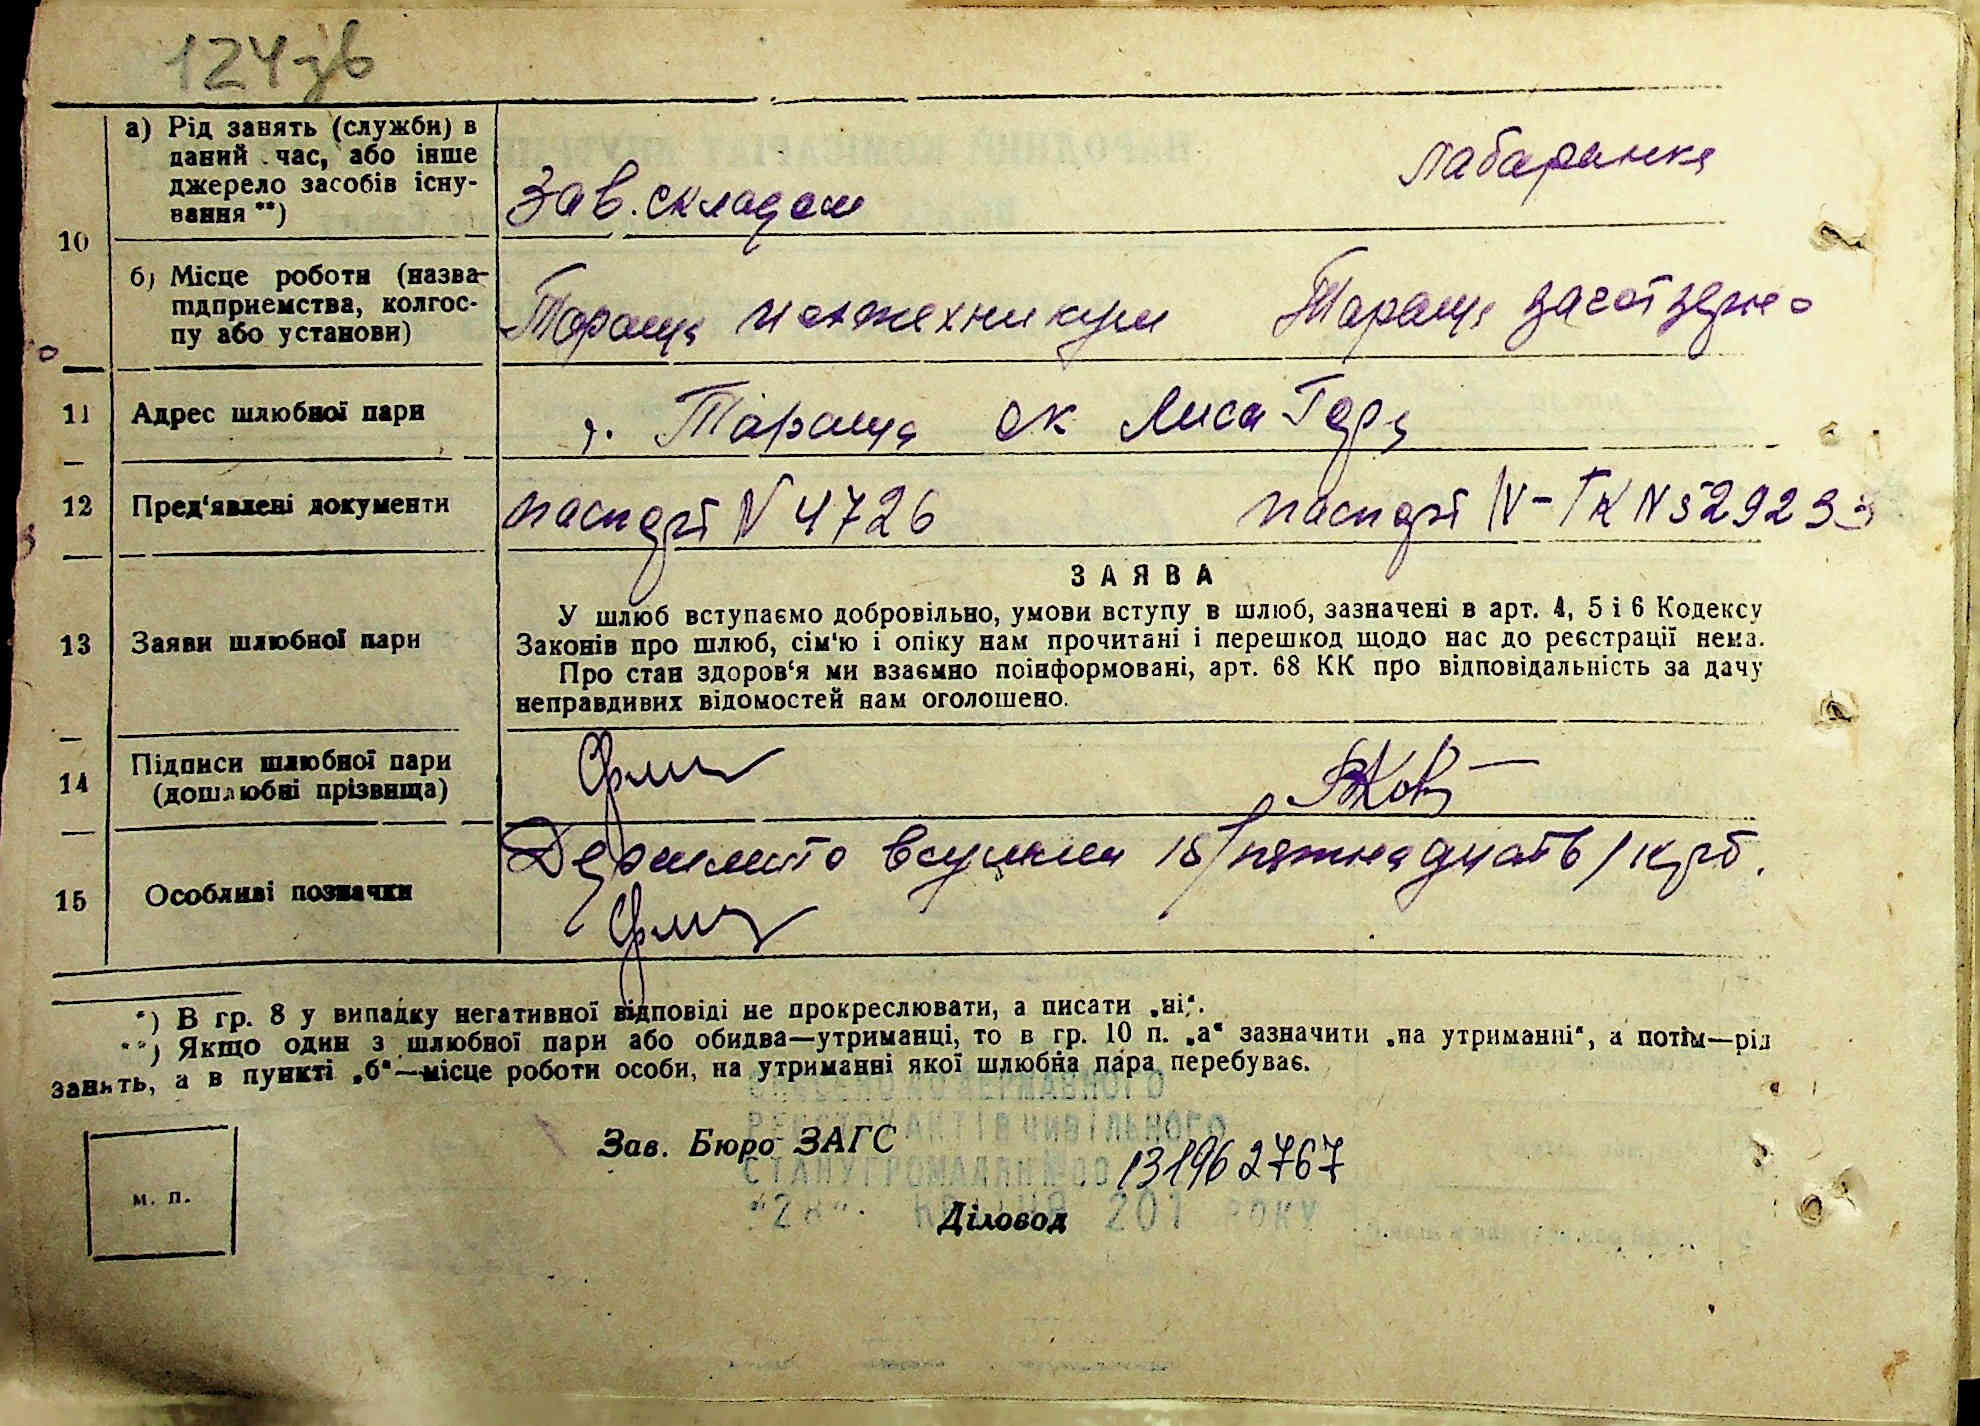 124зв
а) Рід занять (служби) в
даний час, або інше
джерело засобів існу-
вання **)
Зав. складом
лаборанка
10
б) Місце роботи (назва
підприємства, колгос-
пу або установи)
Тараща
Тараща заготзерно
11 Адрес шлюбної пари
г. Тараща ок Лиса Гора
12 Пред'явлені документи
паспорт N 4726
паспорт IV-ГК N 529233
ЗАЯВА
У шлюб вступаємо добровільно, умови вступу в шлюб, зазначені в арт. 4, 5 і 6 Кодексу
Законів про шлюб, сім'ю і опіку нам прочитані і перешкод щодо нас до реєстрації нема.
Про стан здоров'я ми взаємно поінформовані, арт. 68 КК про відповідальність за дачу
неправдивих відомостей нам оголошено.
13 Заяви шлюбної пари
14 Підписи шлюбної пари
(дошлюбні прізвища)
15 Особливі позначки
15 /пятнадцать/ крб.
*) В гр. 8 у випадку негативної відповіді не прокреслювати, а писати „ні“.
**) Якщо один з шлюбної пари або обидва—утриманці, то в гр. 10 п. „а“ зазначити „на утриманні“, а потім—рід
занять, а в пункті „б“—місце роботи особи, на утриманні якої шлюбна пара перебуває.
ДЕРЖАВНОГО
РЕЄСТРУ АКТІВ ЦИВІЛЬНОГО
Зав. Бюро ЗАГС
СТАНУ ГРОМАДЯН
131962767
м. п.
"28" 201 РОКУ
Діловод